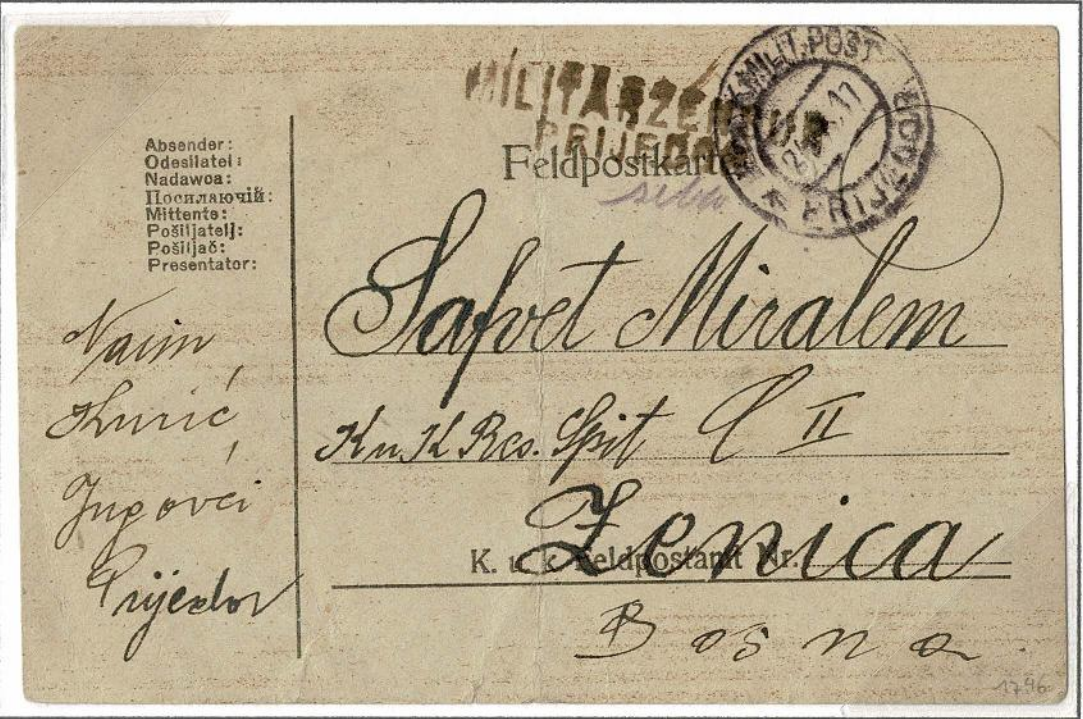 MILITÄRZEN
PRIJEDOR
K.u.K. MILIT. POST
PRIJEDOR
Feldpostkarte
Absender:
Odesílatel:
Nadawca:
Посилаючій:
Mittente:
Pošiljatelj:
Pošiljač:
Presentator:
Naim
Kurić
Prijedor
Safvet Miralem
K u K Res. Spit II
Zenica
K. u. k. Feldpostamt Nr.
Bosna
1796